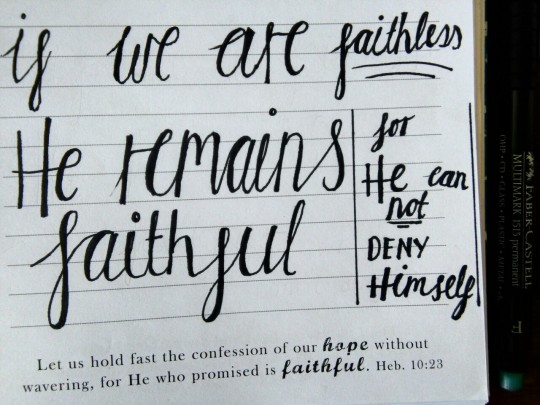 if we are faithless
He remains
faithful
for
He can
not
DENY
Himself
Let us hold fast the confession of our hope without
wavering, for He who promised is faithful. Heb. 10:23
FABER-CASTELL
MULTIMARK 1513 permanent